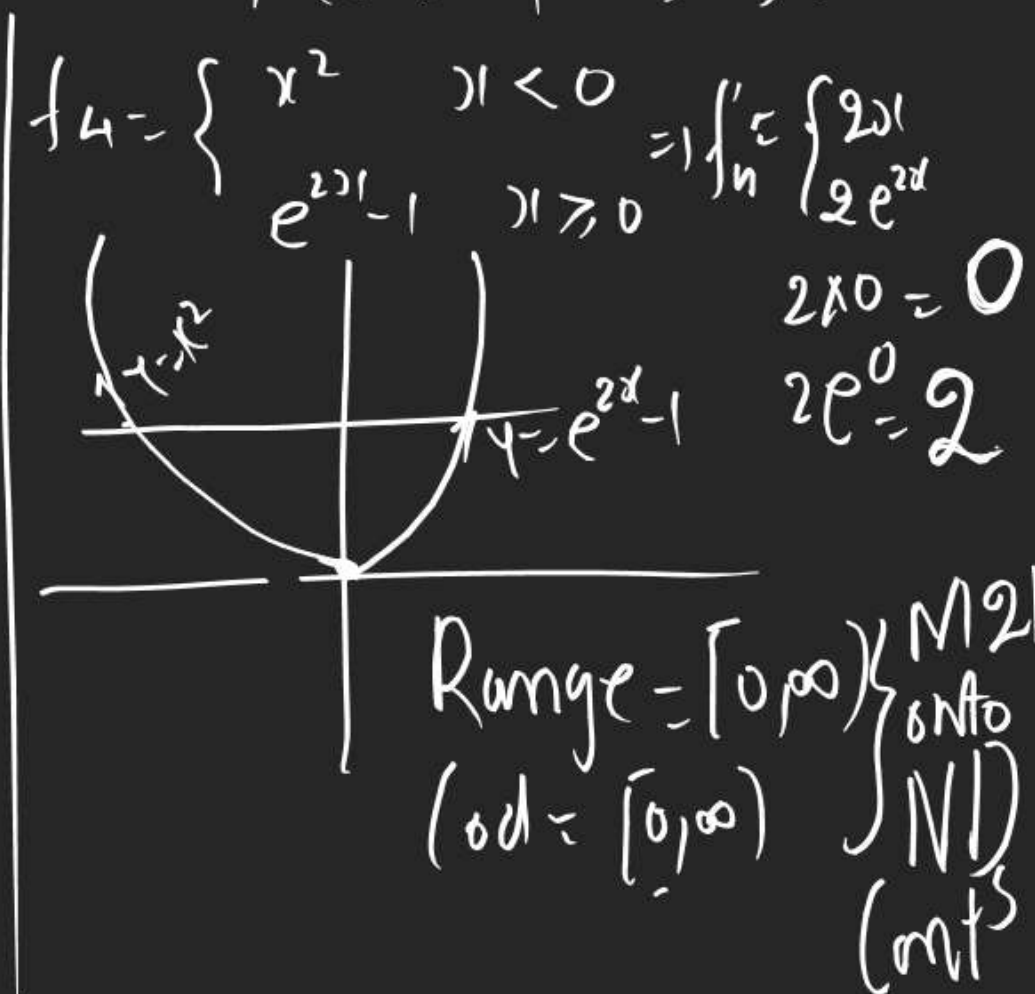 f4 = { x² x < 0
e^{2x} - 1 x ≥ 0
⇒ f'₄ = { 2x
2e^{2x}
2×0 = 0
2e⁰ = 2
y = x²
y = e^{2x} - 1
Range = [0,∞)
Cod = [0,∞)
} M21
onto
ND
Cont^s